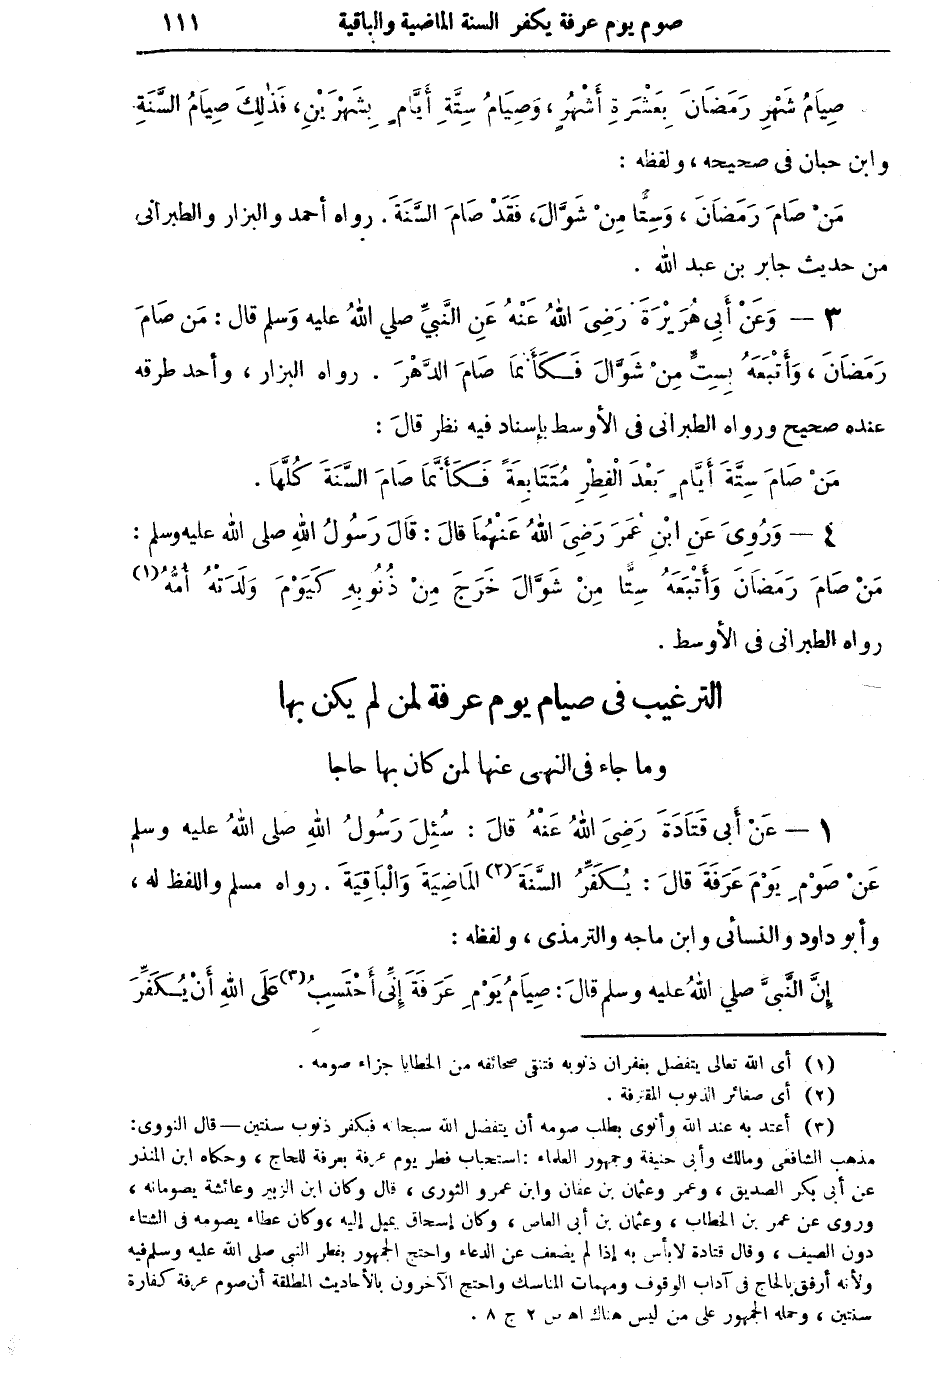 صوم يوم عرفة يكفر السنة الماضية والباقية ١١١
صِيَامُ شَهْرِ رَمَضَانَ بِعَشْرَةِ أَشْهُرٍ ، وَصِيَامُ سِتَّةِ أَيَّامٍ بِشَهْرَيْنِ، فَذٰلِكَ صِيَامُ السَّنَةِ
وابن حبان فى صحيحه ، ولفظه :
مَنْ صَامَ رَمَضَانَ ، وَسِتًّا مِنْ شَوَّالَ، فَقَدْ صَامَ السَّنَةَ . رواه أحمد والبزار والطبرانى
من حديث جابر بن عبد الله .
٣ — وَعَنْ أَبِى هُرَيْرَةَ رَضِىَ اللهُ عَنْهُ عَنِ النَّبِىِّ صلي اللهُ عليه وَسلم قال : مَن صَامَ
رَمَضَانَ ، وَأَتْبَعَهُ بِسِتٍّ مِنْ شَوَّالَ فَكَأَنَّمَا صَامَ الدَّهْرَ . رواه البزار ، وأحد طرقه
عنده صحيح ورواه الطبرانى فى الأوسط بإسناد فيه نظر قالَ :
مَنْ صَامَ سِتَّةَ أَيَّامٍ بَعْدَ الْفِطْرِ مُتَتَابِعَةً فَكَأَنَّمَا صَامَ السَّنَةَ كُلَّهَا .
٤ — وَرُوِىَ عَنِ ابْنِ عُمَرَ رَضِىَ اللهُ عَنْهُمَا قالَ : قَالَ رَسُولُ اللهِ صلى الله عليه وسلم :
مَنْ صَامَ رَمَضَانَ وَأَتْبَعَهُ سِتًّا مِنْ شَوَّالَ خَرَجَ مِنْ ذُنُوبِهِ كَيَوْمَ وَلَدَتْهُ أُمُّهُ(١)
رواه الطبرانى فى الأوسط .
الترغيب فى صيام يوم عرفة لمن لم يكن بها
وما جاء فى النهى عنها لمن كان بها حاجا
١ — عَنْ أَبى قَتَادَةَ رَضِىَ اللهُ عَنْهُ قالَ : سُئِلَ رَسُولُ اللهِ صلى اللهُ عليه وسلم
عَنْ صَوْمِ يَوْمِ عَرَفَةَ قالَ : يُكَفِّرُ السَّنَةَ(٢) المَاضِيَةَ وَالْبَاقِيَةَ . رواه مسلم واللفظ له ،
وأبو داود والنسائى وابن ماجه والترمذى ، ولفظه :
إِنَّ النَّبِىَّ صلي اللهُ عليه وسلم قالَ : صِيَامُ يَوْمِ عَرَفَةَ إِنِّى أَحْتَسِبُ(٣) عَلَى اللهِ أَنْ يُكَفِّرَ
(١) أى الله تعالى يتفضل بغفران ذنوبه فتنقى صحائفه من الخطايا جزاء صومه .
(٢) أى صغائر الذنوب المقترفة .
(٣) أعتد به عند الله وأنوى بطلب صومه أن يتفضل الله سبحانه فيكفر ذنوب سنتين — قال النووى :
مذهب الشافعى ومالك وأبى حنيفة وجمهور العلماء : استحباب فطر يوم عرفة بعرفة للحاج ، وحكاه ابن المنذر
عن أبى بكر الصديق ، وعمر وعثمان بن عفان وابن عمرو الثورى ، قال وكان ابن الزبير وعائشة يصومانه ،
وروى عن عمر بن الخطاب ، وعثمان بن أبى العاص ، وكان إسحاق يميل إليه ، وكان عطاء يصومه فى الشتاء
دون الصيف ، وقال قتادة لا بأس به إذا لم يضعف عن الدعاء واحتج الجمهور بفطر النبى صلى الله عليه وسلم فيه
ولأنه أرفق بالحاج فى آداب الوقوف ومهمات المناسك واحتج الآخرون بالأحاديث المطلقة أن صوم عرفة كفارة
سنتين ، وحمله الجمهور على من ليس هناك اه ص ٢ ج ٨ .